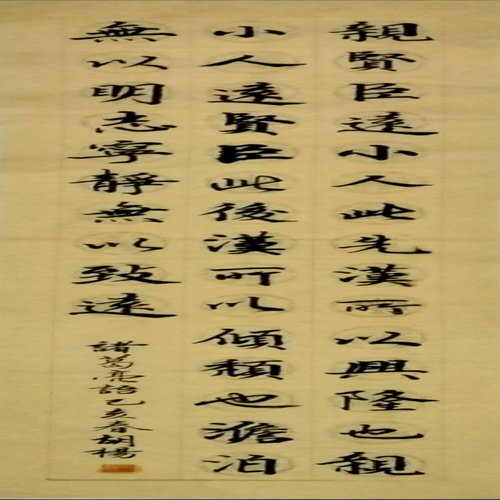 親賢臣遠小人此先漢所以興隆也親
小人遠賢臣此後漢所以傾頹也澹泊
無以明志寧靜無以致遠
諸葛亮語己亥春胡楊